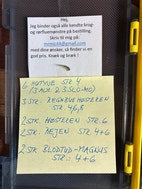 Hej,
Jeg binder også alle kendte krog-
og rørfluemønstre på bestilling.
Skriv til mig på:
med dine ønsker, så finder vi en
god pris. Knæk og bræk !
6 MUTVIE STR. 4
3 STK. REGNENS HOSTEREN
STR. 4,6,8
2 STK. HOSTEREN STR. 6
2 STK. REJEN STR. 4+6
2 STK. BLODTUD-MAGNUS
STR. 4+6